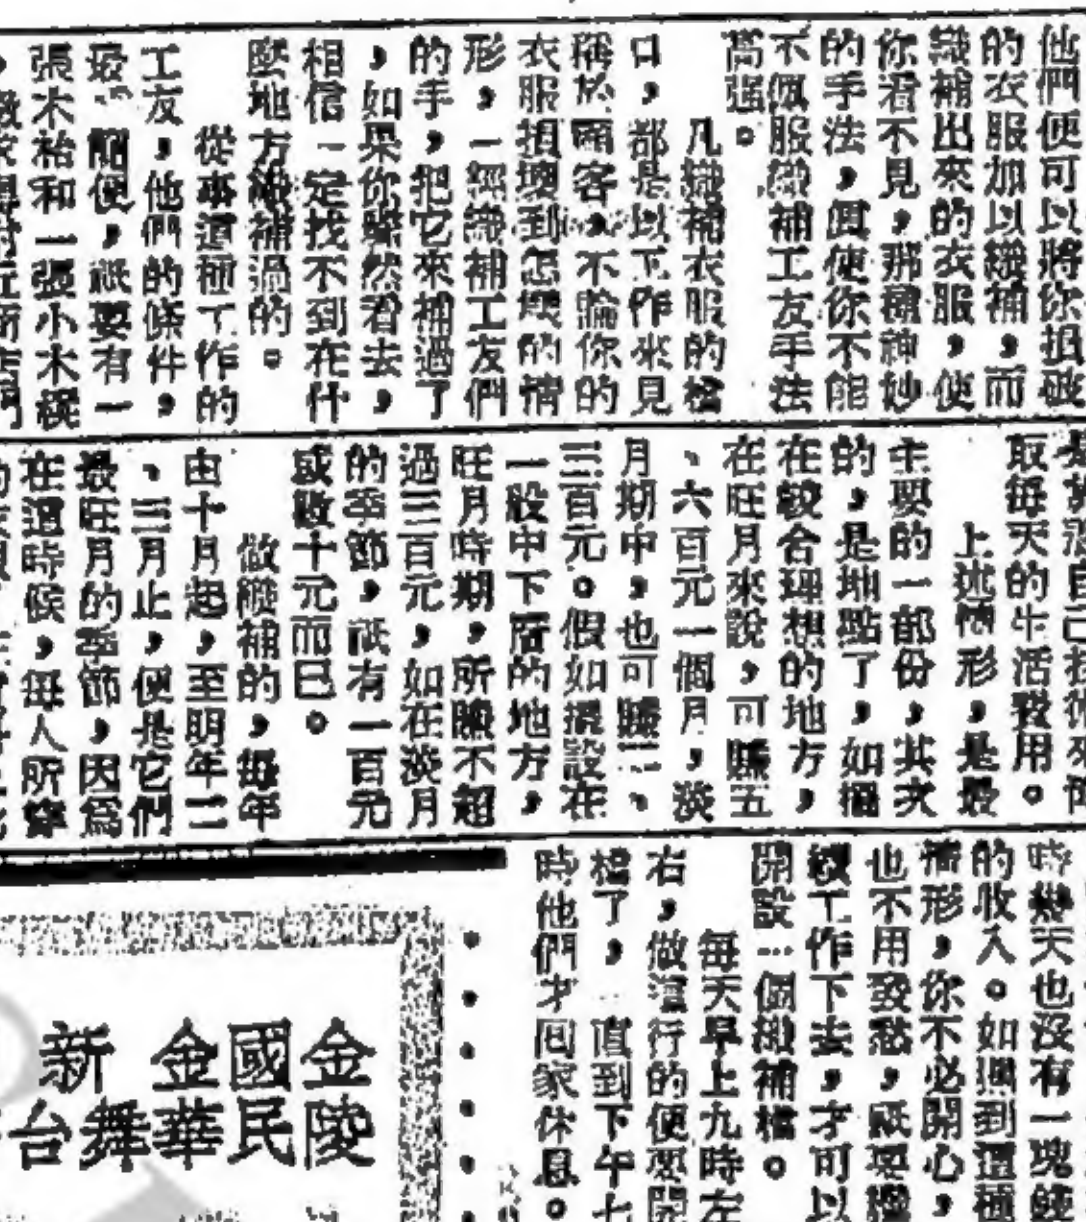 他們便可以將你損破
的衣服加以織補，而
織補出來的衣服，使
你看不見，那種神妙
的手法，眞使你不能
不佩服織補工友手法
高强。
凡織補衣服的檔
口，都是以工作來見
稱於顧客，不論你的
衣服損壞到怎樣的情
形，一經織補工友們
的手，把它來補過了
，如果你驟然看去，
相信一定找不到在什
麼地方織補過的。
從事這種工作的
工友，他們的條件，
最簡便，祇要有一
張木枱和一張小木櫈
取每天的生活費用。
上述情形，是最
主要的一部份，其次
的，是地點了，如擺
在較合理想的地方，
在旺月來說，可賺五
、六百元一個月，淡
月期中，也可賺二、
三百元。假如擺設在
一般中下層的地方，
旺月時期，所賺不超
過三百元，如在淡月
的季節，祇有一百元
或數十元而已。
做織補的，每年
由十月起，至明年二
、三月止，便是它們
最旺月的季節，因爲
在這時候，每人所穿
時幾天也沒有一塊錢
的收入。如遇到這種
情形，你不必開心，
也不用發愁，祇要繼
續工作下去，才可以
開設一個織補檔。
每天早上九時左
右，做這行的便要開
檔了，直到下午七
時他們才回家休息。
金陵
國民
金華
舞
新台